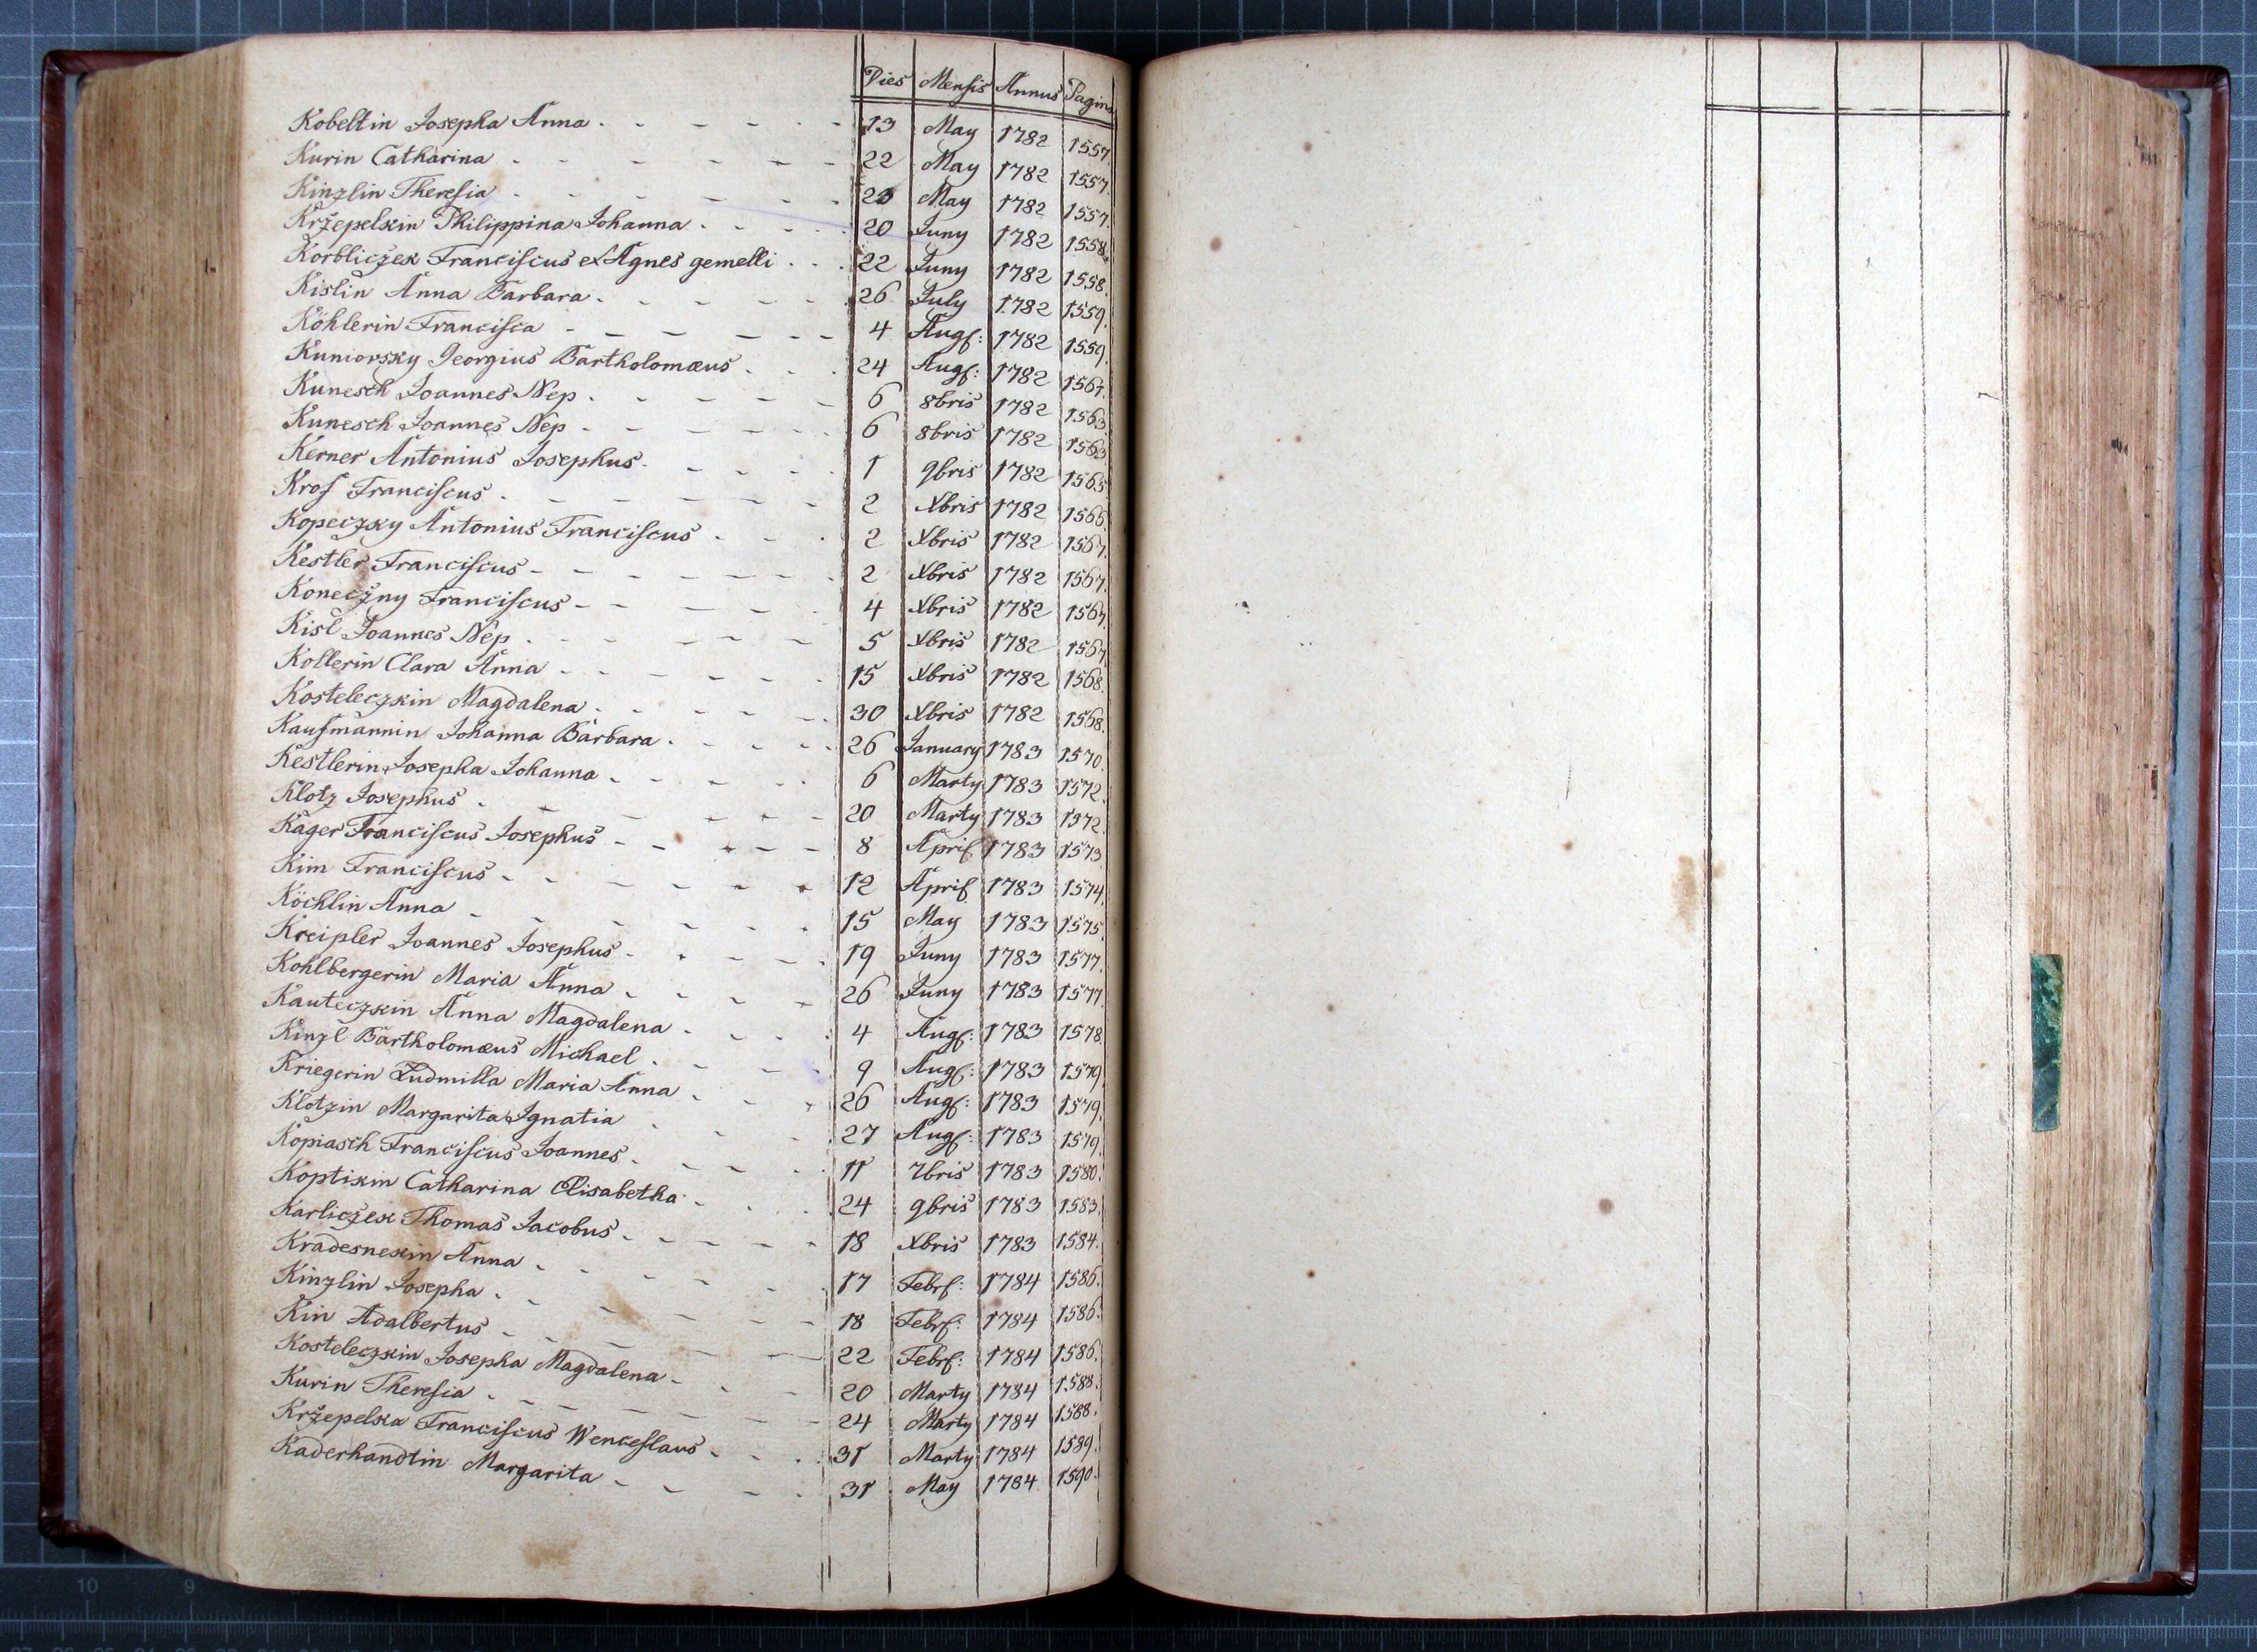 Dies Mensis Annus Pagina
Kobeltin Josepha Anna 13 May 1782 1557.
Kurin Catharina 22 May 1782 1557.
Kinzlin Theresia 23 May 1782 1557.
Kržepelkin Philippina Johanna 20 Juny 1782 1558.
Korbliczek Franciscus et Agnes gemelli 22 Juny 1782 1558.
Kislin Anna Barbara 26 July 1782 1559.
Köhlerin Francisca 4 Aug: 1782 1559.
Kuniovsky Georgius Bartholomæus 24 Aug: 1782 1561.
Kunesch Joannes Nep 6 8bris 1782 1563.
Kunesch Joannes Nep 6 8bris 1782 1563
Kerner Antonius Josephus 1 9bris 1782 1565
Krof Franciscus 2 Xbris 1782 1566.
Kopeczky Antonius Franciscus 2 Xbris 1782 1567.
Kestler Franciscus 2 Xbris 1782 1567.
Koneczny Franciscus 4 Xbris 1782 1567.
Kisl Joannes Nep 5 Xbris 1782 1567
Kollerin Clara Anna 15 Xbris 1782 1568.
Kosteleczkin Magdalena 30 Xbris 1782 1568.
Kaufmannin Johanna Barbara 26 January 1783 1570.
Kestlerin Josepha Johanna 6 Marty 1783 1572.
Klotz Josephus 20 Marty 1783 1572.
Kager Franciscus Josephus 8 April 1783 1573.
Kim Franciscus 12 April 1783 1574.
Köchlin Anna 15 May 1783 1575.
Kreipler Joannes Josephus 19 Juny 1783 1577.
Kohlbergerin Maria Anna 26 Juny 1783 1577.
Kauteczkin Anna Magdalena 4 Aug: 1783 1578.
Kinzl Bartholomæus Michael 9 Aug: 1783 1579.
Kriegerin Ludmilla Maria Anna 26 Aug: 1783 1579.
Klotzin Margarita Ignatia 27 Aug: 1783 1579.
Kopiasch Franciscus Joannes 11 7bris 1783 1580.
Koptikin Catharina Elisabetha 24 9bris 1783 1583.
Karliczek Thomas Jacobus 18 Xbris 1783 1584.
Kradesnekin Anna 17 Febr: 1784 1586.
Kinzlin Josepha 18 Febr: 1784 1586.
Kin Adalbertus 22 Febr: 1784 1586.
Kosteleczkin Josepha Magdalena 20 Marty 1784 1588.
Kurin Theresia 24 Marty 1784 1588.
Kržepelka Franciscus Wenceslaus 31 Marty 1784 1589.
Kaderhandtin Margarita 31 May 1784 1590.